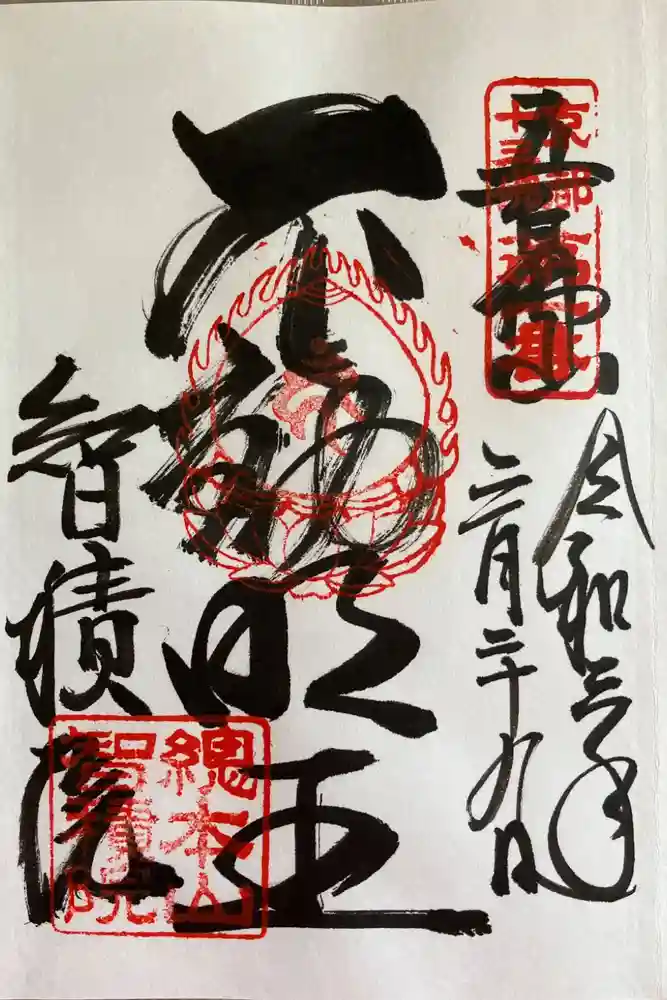 五百佛山
京都
十三佛
第一番
令和三年
三月二十九日
不動明王
智積院
總本山
智積院